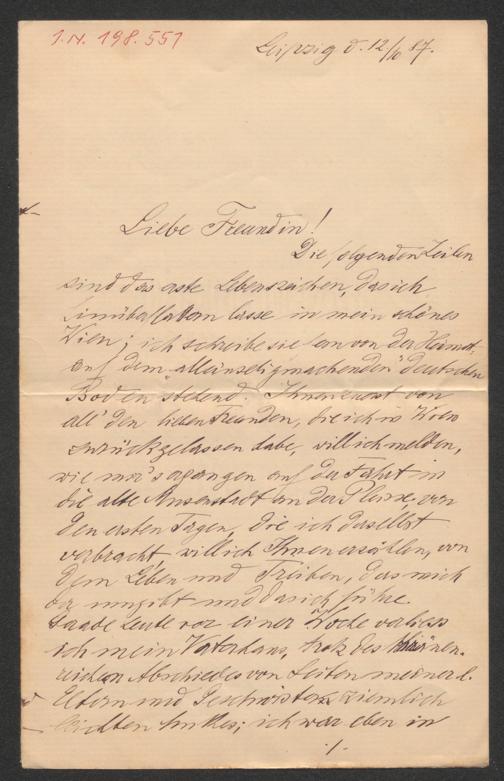 I.N. 198.551
Leipzig d. 12/10 87.
Liebe Freundin!
Die folgenden Zeilen
sind das erste Lebenszeichen, das ich
hinüberflattern lasse in mein schönes
Wien; ich schreibe sie fern von der Heimat,
auf dem "alleinseligmachenden" deutschen
Boden stehend. Ihnen zuerst von
all' den lieben Freunden, die ich in Wien
zurückgelassen habe, will ich melden,
wie mir's ergangen auf der Fahrt in
die alte Musenstadt an der Pleisse, von
den ersten Tagen, die ich daselbst
verbracht, will ich Ihnen erzählen, von
dem Leben und Treiben, das mich
hier umgibt und das ich führe.
Gerade heute vor einer Woche verliess
ich mein Vaterhaus, trotz des thränen-
reichen Abschiedes von Seiten meiner l.
Eltern und Geschwister ziemlich
leichten Muthes; ich war eben in
./.